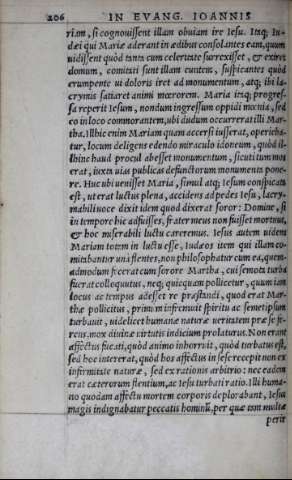 206 IN EVANG. IOANNIS
rim, si cognouissent illam obuiam ire Iesu. Itaq; Iu-
dæi qui Mariæ aderant in ædibus consolantes eam, quum
uidissent quòd tanta cum celeritate surrexisset, & exiret
domum, comitati sunt illam euntem, suspicantes quòd
erumpente ui doloris iret ad monumentum, atq; ibi la-
crymis satiaret animi mœrorem. Maria itaq; progres-
sa reperit Iesum, nondum ingressum oppidi mœnia, sed
eo in loco commorantem, ubi dudum occurrerat illi Mar-
tha. Illhic enim Mariam quam accersi iusserat, operieba-
tur, locum deligens edendo miraculo idoneum, quòd il-
lhinc haud procul abesset monumentum, sicuti tum mos
erat, iuxta uias publicas defunctorum monumenta pone-
re. Huc ubi uenisset Maria, simul atq; Iesum conspicata
est, ut erat luctus plena, accidens ad pedes Iesu, lacry-
mabili uoce dixit idem quod dixerat soror: Domine, si
in tempore hic adfuisses, frater meus non fuisset mortuus,
& hoc miserabili luctu careremus. Iesus autem uidens
Mariam totam in luctu esse, Iudæos item qui illam co-
mitabantur unà flentes, non philosophatur cum ea, quem-
admodum fecerat cum sorore Martha, cui semota turba
fuerat colloquutus, neq; quicquam pollicetur, quum iam
locus ac tempus adesset re præstandi, quod erat Mar-
thæ pollicitus, primum infremuit spiritu ac semetipsum
turbauit, uidelicet humanæ naturæ ueritatem præ se fe-
rens, mox diuinæ uirtutis indicium prolaturus. Non erant
affectus fucati, quòd animo inhorruit, quòd turbatus est,
sed hoc intererat, quòd hos affectus in se se recepit non ex
infirmitate naturæ, sed ex rationis arbitrio: nec eadem
erat cæterorum flentium, ac Iesu turbati ratio. Illi huma-
no quodam affectu mortem corporis deplorabant, Iesus
magis indignabatur peccatis hominũ, per quæ tam multæ
perir